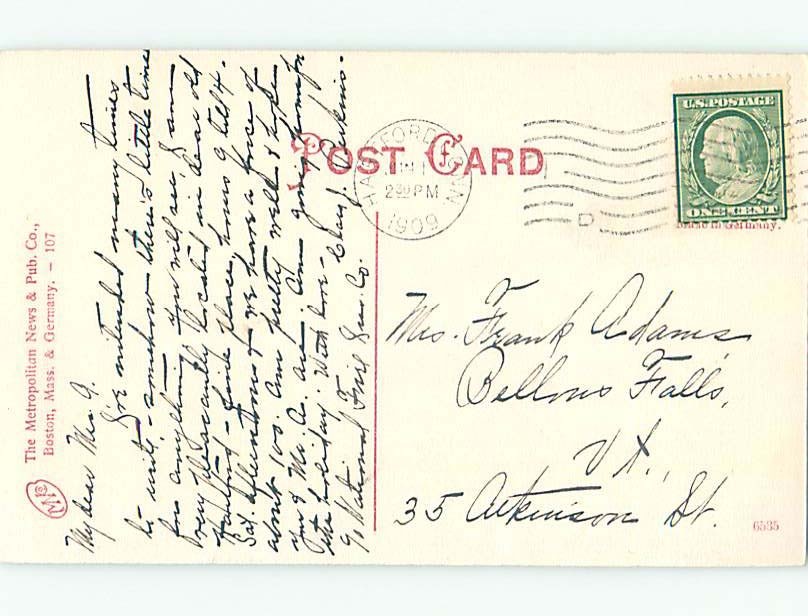 POST CARD
HARTFORD CONN
2 30 PM
1909
D
U.S. POSTAGE
ONE CENT
Made in Germany.
The Metropolitan News & Pub. Co.,
Boston, Mass. & Germany. - 107
My dear Mrs. A.
I've intended many times
to write, - somehow there's little time
for anything. You will see, I am
very pleasantly located in dear old
Hartford - fine place, hours 9 till 4.
Sat. afternoons & we have a force of
about 100. Am pretty well & hope
you & Mr. A. are. Am going home for
the holiday. With love - J. Perkins -
c/o National Fire Ins. Co.
Mrs. Frank Adams
Bellows Falls,
Vt.,
35 Atkinson St.
6535